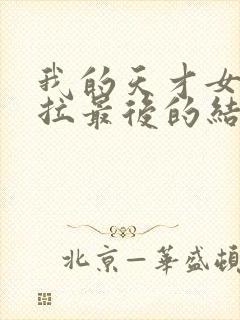 我的天才女
拉最後的結
北京—華盛頓